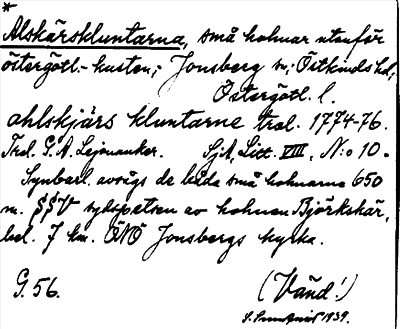 *
Alskärskluntarna, små holmar utanför
östergötl.-kusten; Jonsberg sn; Östkinds hd,
Östergötl. l.
ahlskjärs kluntarne trol. 1774-76.
Trol. G. A. Lejonanker. SjA, Litt. VIII, N:o 10.
Synbarl. avsågs de båda små holmarna 650
m. SSV sydspetsen av holmen Björkskär,
bel. 7 km. ÖNÖ Jonsbergs kyrka.
G. 56. (Vänd!)
1939.